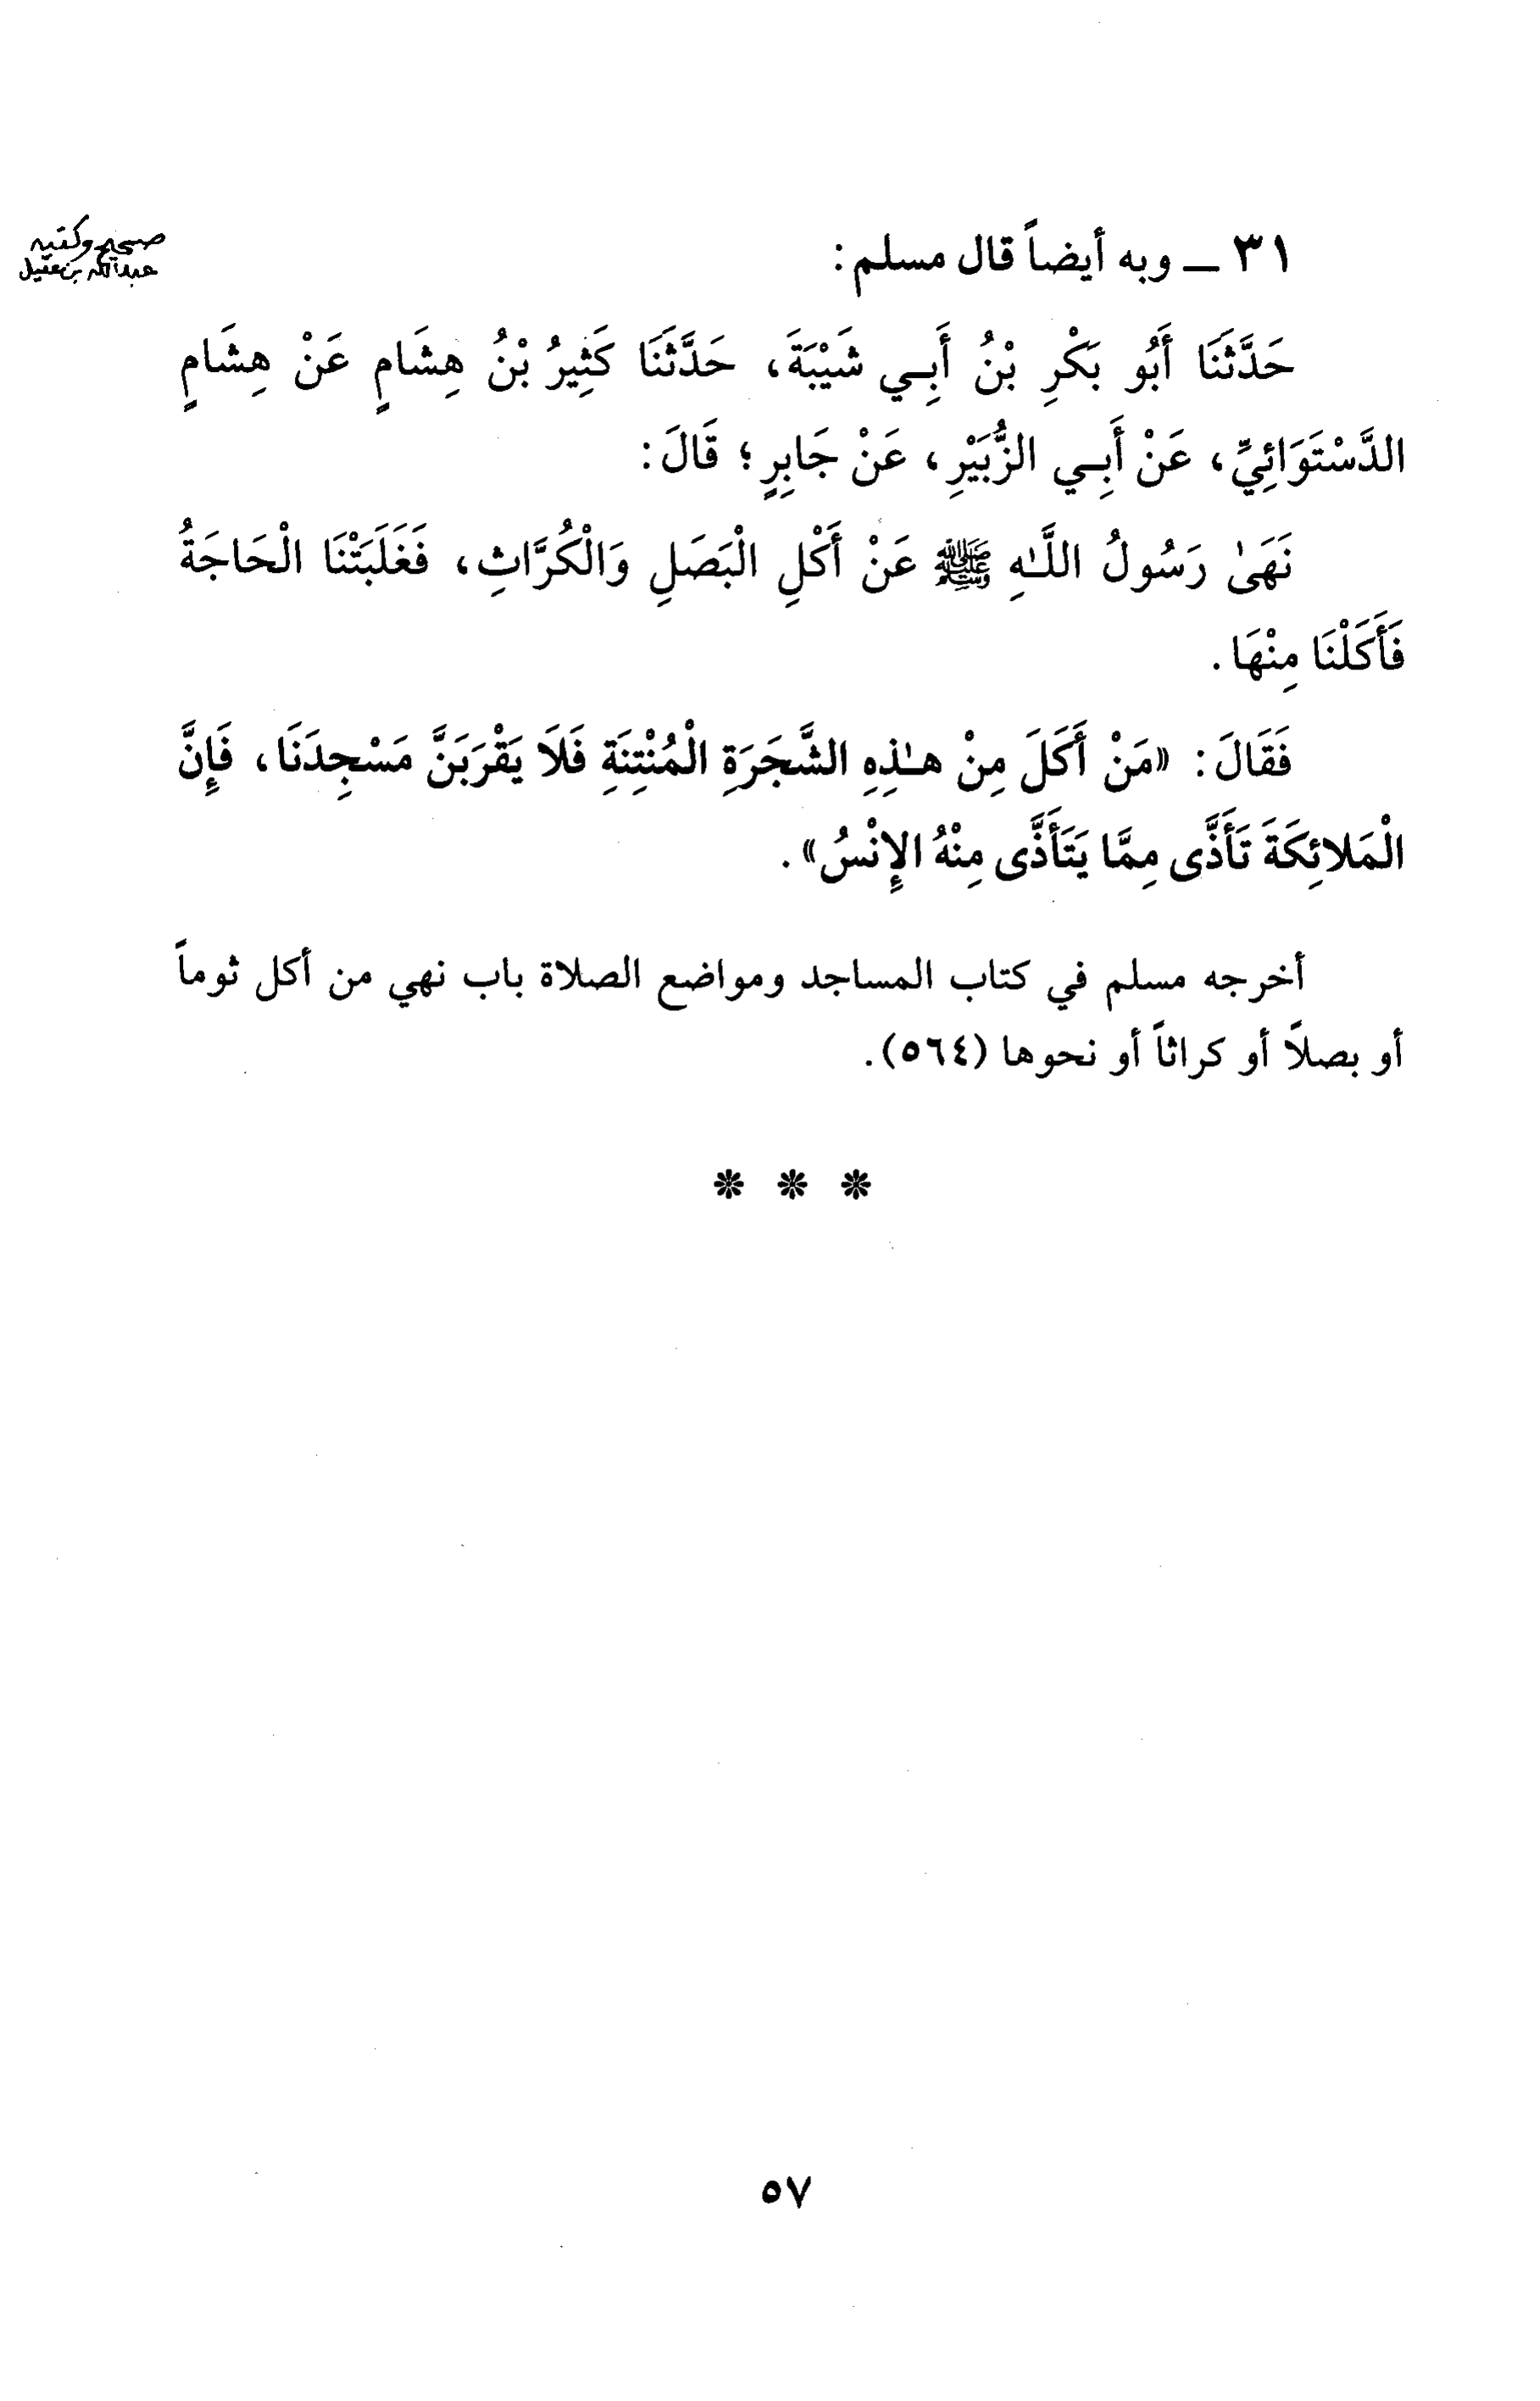 ٣١ ــ وبه أيضاً قال مسلم:
صحيح وكتبه
عبدالله بن عقيل
حَدَّثَنَا أَبُو بَكْرِ بْنُ أَبِـي شَيْبَةَ، حَدَّثَنَا كَثِيرُ بْنُ هِشَامٍ عَنْ هِشَامٍ
الدَّسْتَوَائِيِّ، عَنْ أَبِـي الزُّبَيْرِ، عَنْ جَابِرٍ؛ قَالَ:
نَهَىٰ رَسُولُ اللَّـٰهِ ﷺ عَنْ أَكْلِ الْبَصَلِ وَالْكُرَّاثِ، فَغَلَبَتْنَا الْحَاجَةُ
فَأَكَلْنَا مِنْهَا.
فَقَالَ: «مَنْ أَكَلَ مِنْ هـٰذِهِ الشَّجَرَةِ الْمُنْتِنَةِ فَلاَ يَقْرَبَنَّ مَسْجِدَنَا، فَإِنَّ
الْمَلائِكَةَ تَأَذَّى مِمَّا يَتَأَذَّى مِنْهُ الإِنْسُ».
أخرجه مسلم في كتاب المساجد ومواضع الصلاة باب نهي من أكل ثوماً
أو بصلاً أو كراثاً أو نحوها (٥٦٤).
* * *
٥٧